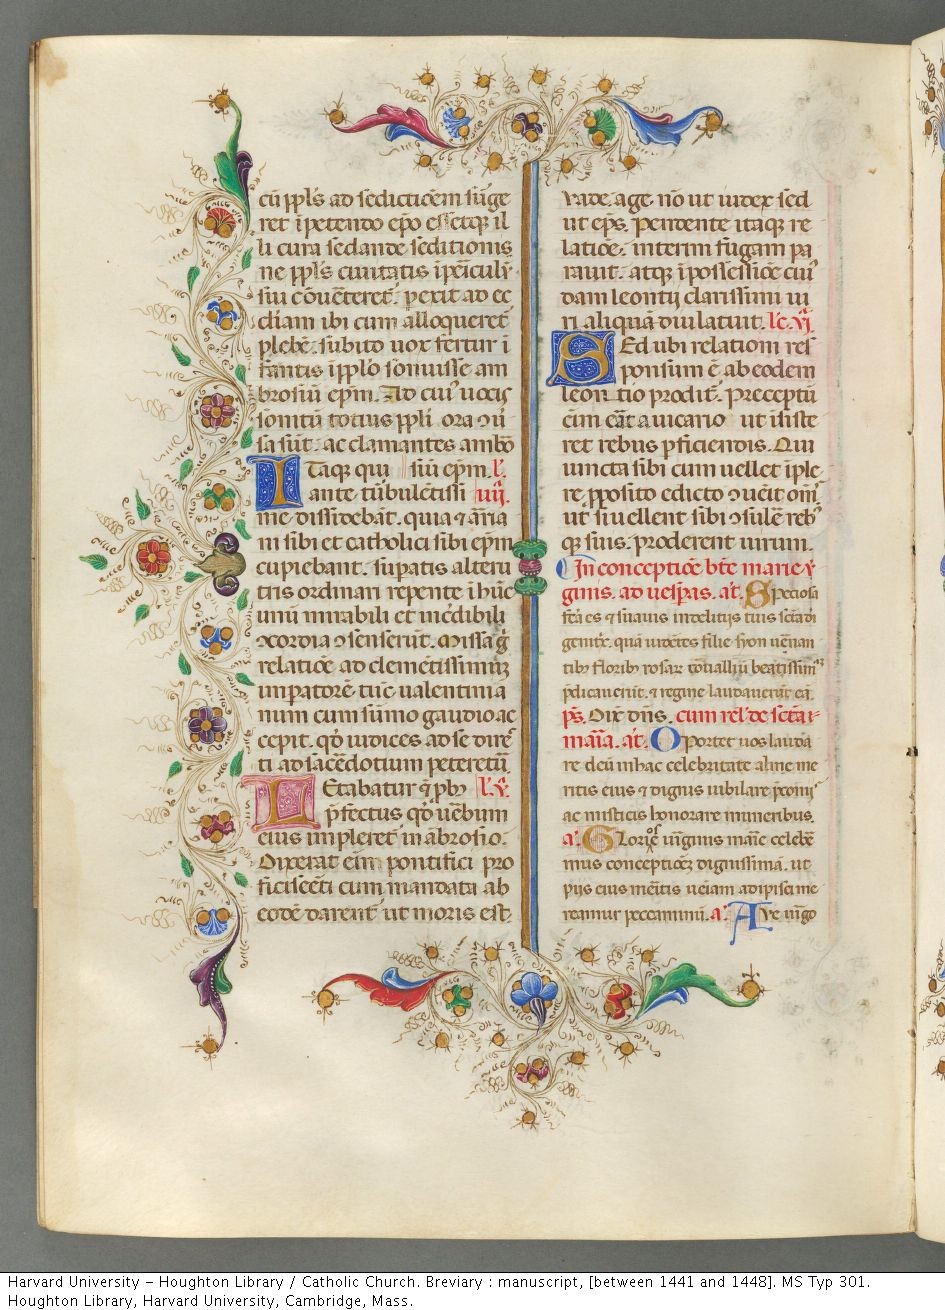 cū pplꝰ ad sedictiōem sūge
ret īpetendo epō eēt q̄ il
li cura sedande seditionis
ne pplꝰ ciuitatis ī
siu cōuēteret. pexit ad ec
cl'iam ibi cum alloqueret̄
plebē. subito uox fertur ī
fantis ī pplo sonuisse am
brosiū ep̄m. Ad ciuꝰ uocis
sonitū totius ppli ora ꝯui
sa sūt. ac clamantes ambō
Itaque qui siū ep̄m. l'.
ante tūbulētissi iiij.
me dissidebāt. quia ⁊ ariia
ni sibi et catholici sibi ep̄m
cupiebant. supatis alteru
tris ordinari repente ī hūc
unū mirabili et īcredibili
ꝯcordia ꝯsenserūt. Missa g̊
relatiōe ad clemētissimūꝫ
imparorē tūc ualentinia
num cum sūmo gaudio ac
cepit. qd̓ iudices ad se dire
ti ad sacēdotium peterētū
Letabatur q̄ pbꝰ l'. v̄.
p̄fectus qd̓ uēbum
eius impleret̄ in ābrosio.
Dixerat eīm pontifici pro
ficiscēti cum mandata ab
eodē darent̄ ut moris est.
vade. age nō ut iudex sed
ut ep̄s. pendente itaqꝫ re
latiōe. interim fugam pa
rauit. atqꝫ ī possessiōe cuiꝰ
dam leontij clarissimi ui
ri aliquādiu latuit. l'c. vj.
Sed ubi relationi res
ponsum ē. ab eodem
leontio prodit̄. Preceptū
eīm erat a uicario ut īsiste
ret rebus pficiendis. Qui
iuncta sibi cum uellet īple
re. pposito edicto ꝯuēit om̄ꝰ
ut si uellent sibi ꝯsulē rebꝰ
qꝫ suis. proderent uirum.
In conceptiōe bt̄e marie v̄
ginis. ad uesp̄as. añ. Speciosa
fc̄a es ⁊ suauis in delitijs tuis sc̄ta di
genit̄x. quā uidētes filie syon uernan
tibꝰ floribꝰ rosaꝝ ꝯualliū beatissimꝰ
p̄dicauerūt. ⁊ regine laudauerūt eā.
ps̄. Dix̄. dn̄s. cum rel'. de sc̄ta
maīa. añ. Oportet nos lauda
re deū in hac celebritate alme me
ritis eius ⁊ dignis iubilare pconijs
ac misticis honorare muneribus.
a'. Gloriose uirginis marie celebre
mus conceptioēꝫ dignissimā. ut
pijs eius meritis ueniam adipisci me
reamur peccaminū. a'. Aue uirgo
Harvard University – Houghton Library / Catholic Church. Breviary : manuscript, [between 1441 and 1448]. MS Typ 301.
Houghton Library, Harvard University, Cambridge, Mass.